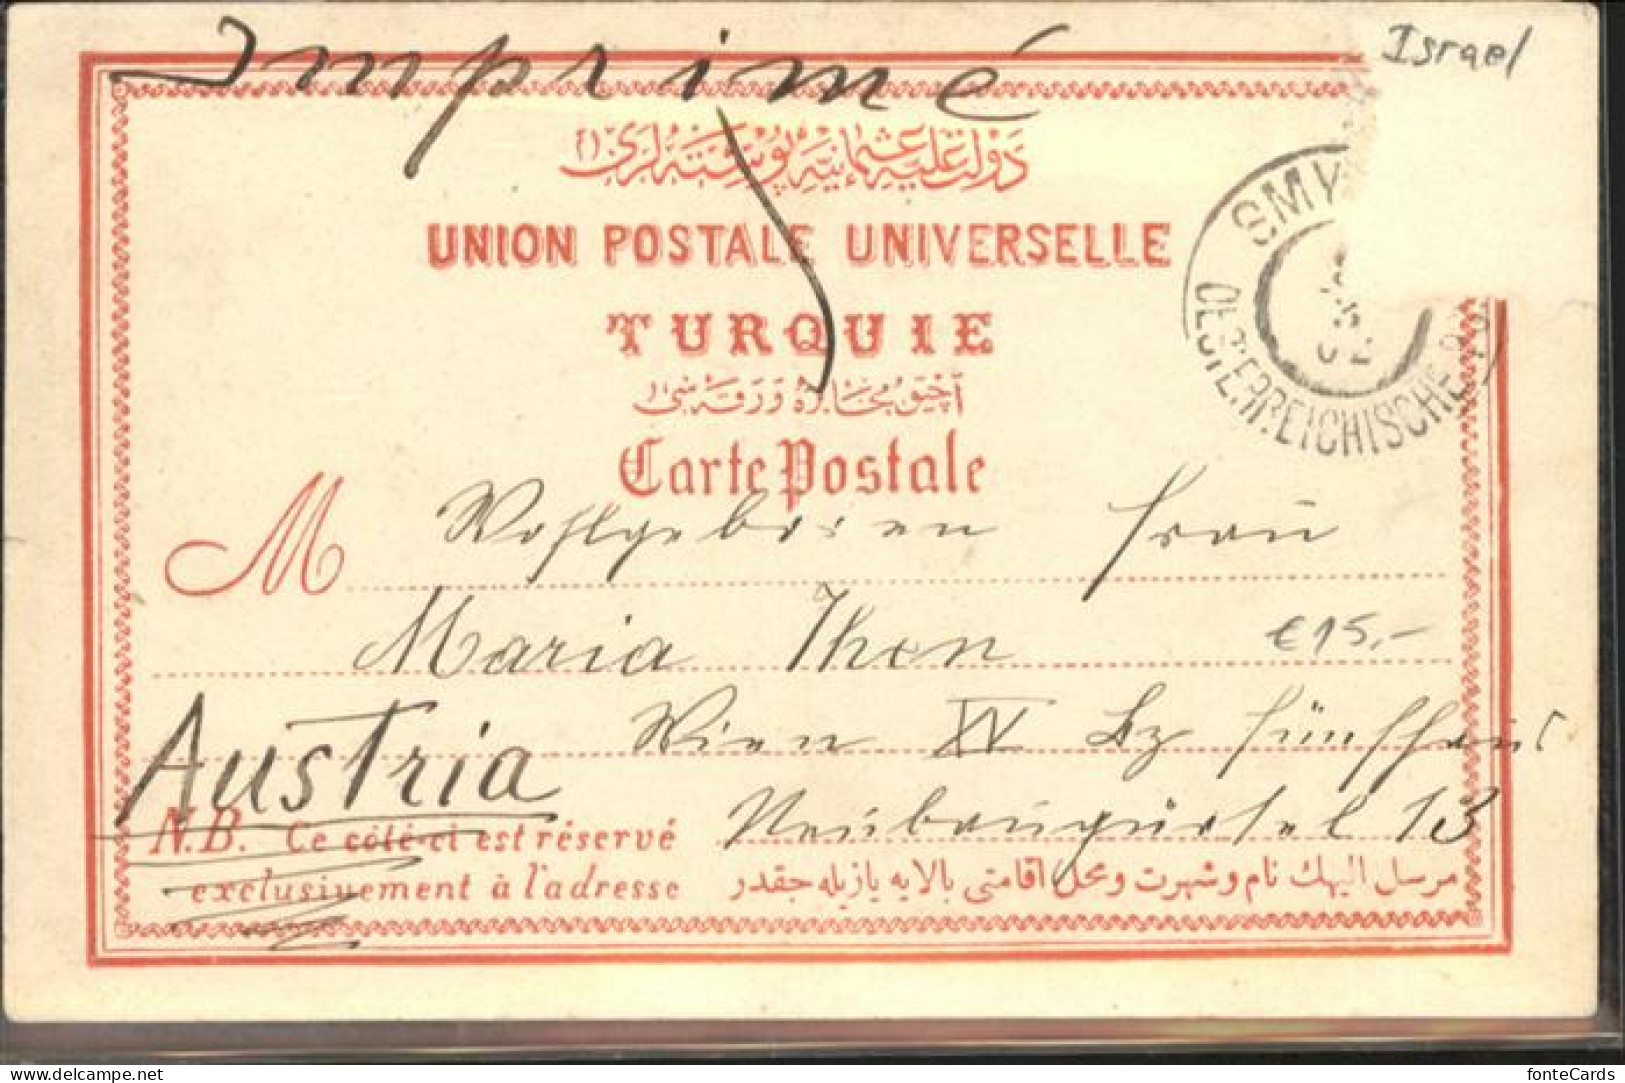 Israel
Imprimé
دولت عليه عثمانيه پوسته لرى
UNION POSTALE UNIVERSELLE
TURQUIE
آچيق مخابره ورقه سى
Carte Postale
SMY
OESTERREICHISCHE P
M Wohlgeboren Frau
Maria Thon
€15.-
Wien XV Bz Fünfhaus
Austria
Neubaugürtel 13
N.B. Ce côté-ci est réservé
exclusivement à l'adresse
مرسل اليهك نام وشهرت ومحل اقامتى بالايه يازيله جقدر
delcampe.net
fonteCards